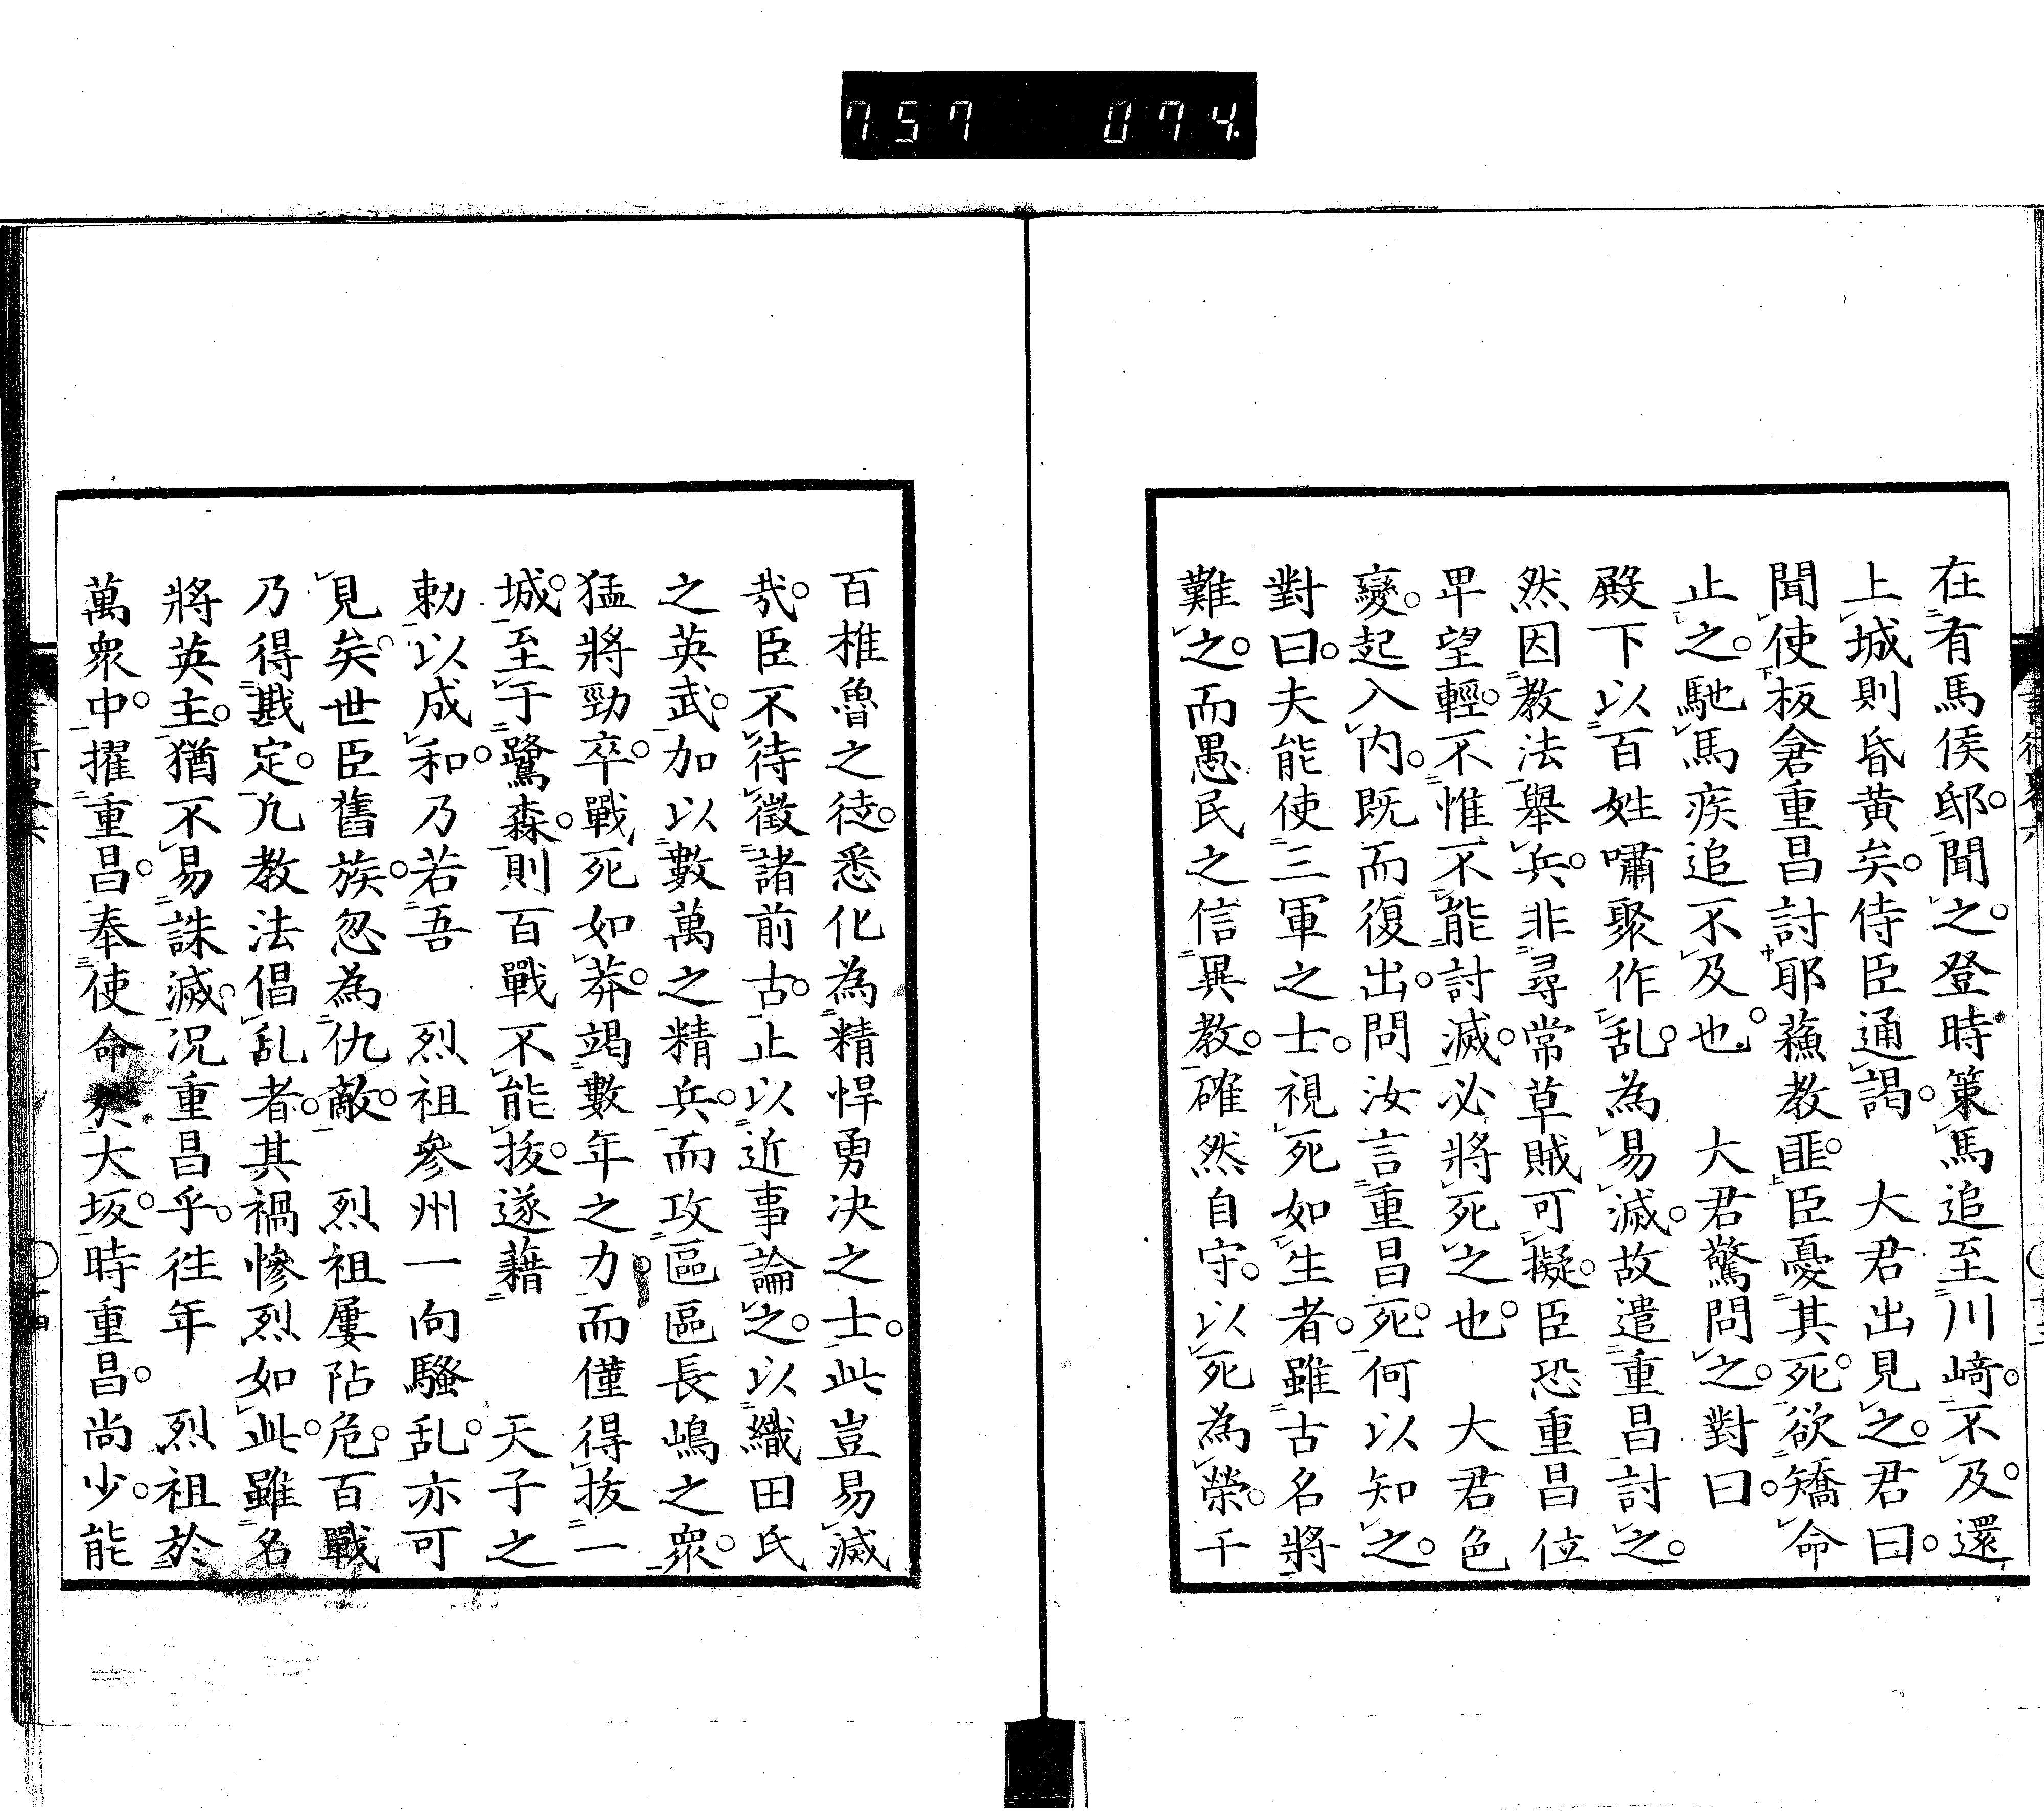 757 074
在有馬侯邸。聞之。登時策馬追至川﨑。不及。還
上城則昏黄矣。侍臣通謁。　大君出見之。君曰。
聞使板倉重昌討耶蘓教匪。臣憂其死。欲矯命
止之。馳馬疾追不及也。　大君驚問之。對曰。
殿下以百姓嘯聚作乱。為易滅。故遣重昌討之。
然因教法舉兵。非尋常草賊可擬。臣恐重昌位
卑望輕。不惟不能討滅。必將死之也。　大君色
變。起入内。既而復出。問汝言重昌死。何以知之。
對曰。夫能使三軍之士。視死如生者。雖古名將
難之。而愚民之信異教。確然自守。以死為榮。千
百椎魯之徒。悉化為精悍勇决之士。此豈易滅
哉。臣不待徵諸前古。止以近事論之。以織田氏
之英武。加以數萬之精兵。而攻區區長嶋之衆。
猛將勁卒。戰死如莽。竭數年之力。而僅得拔一
城。至于鷺森。則百戰不能拔。遂藉　　天子之
勅以成和。乃若吾　烈祖參州一向騷乱。亦可
見矣。世臣舊族。忽為仇敵。　烈祖屢阽危。百戰
乃得戡定。凡教法倡乱者。其禍慘烈如此。雖名
將英主。猶不易誅滅。况重昌乎。往年　烈祖於
萬衆中。擢重昌。奉使命於大坂。時重昌。尚少。能